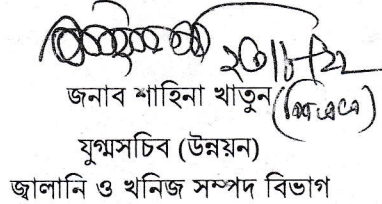 জনাব শাহিনা খাতুন
যুগ্মসচিব (উন্নয়ন)
জ্বালানি ও খনিজ সম্পদ বিভাগ